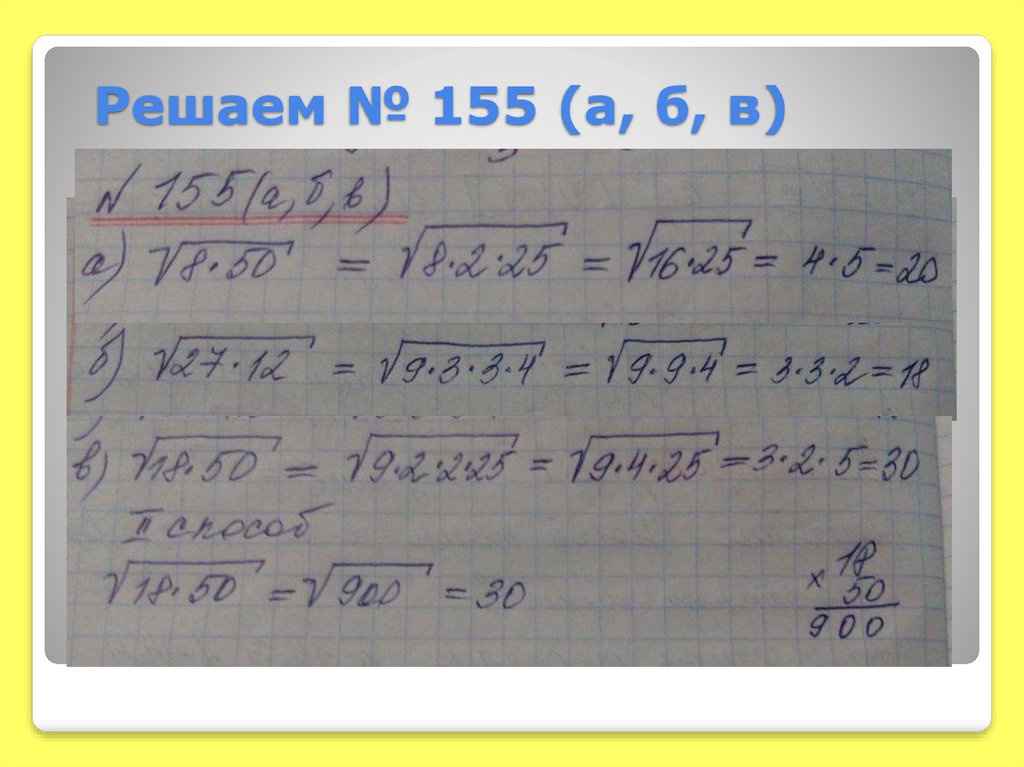 Решаем № 155 (а, б, в)
№ 155 (а, б, в)
а) √8·50 = √8·2·25 = √16·25 = 4·5 = 20
б) √27·12 = √9·3·3·4 = √9·9·4 = 3·3·2 = 18
в) √18·50 = √9·2·2·25 = √9·4·25 = 3·2·5 = 30
II способ
√18·50 = √900 = 30
18
× 50
900